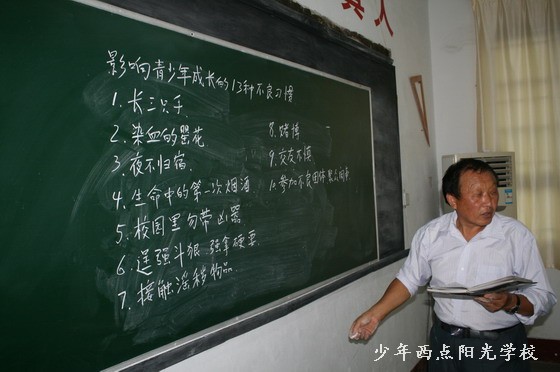 真人
影响青少年成长的13种不良习惯
1.长三只手
2.染血的罂花
3.夜不归宿
4.生命中的第一次烟酒
5.校园里勿带凶器
6.逞强斗狠 强拿硬要
7.接触淫秽物品
8.赌博
9.交友不慎
10.参加不良团体
少年西点阳光学校